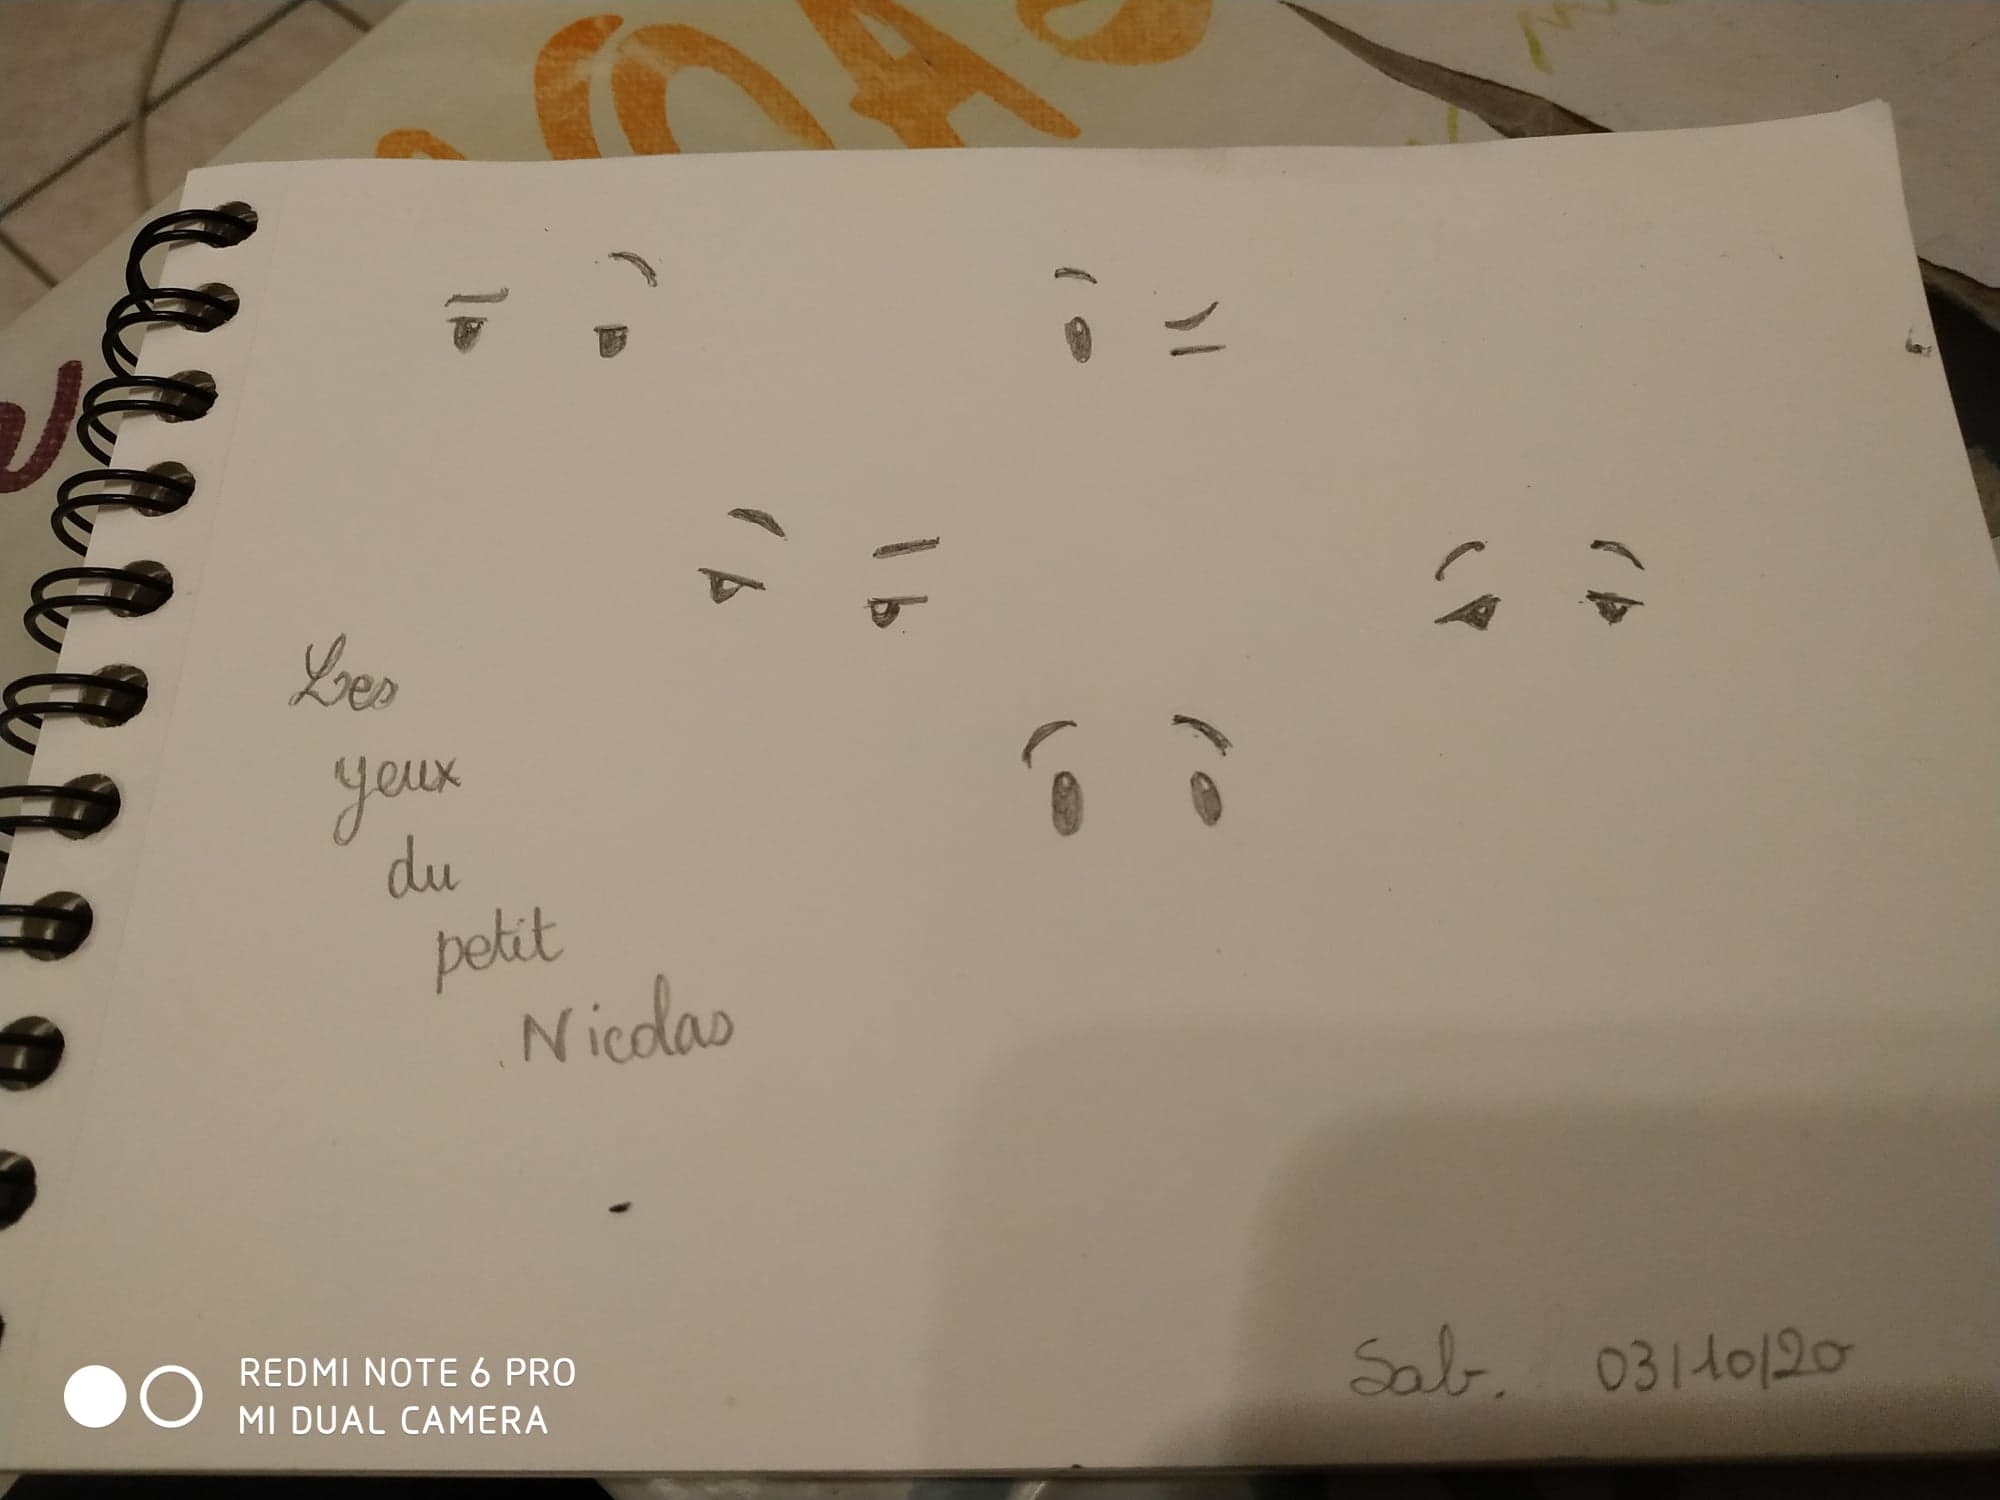 Les
yeux
du
petit
Nicolas
Sab. 03/10/20
REDMI NOTE 6 PRO
MI DUAL CAMERA